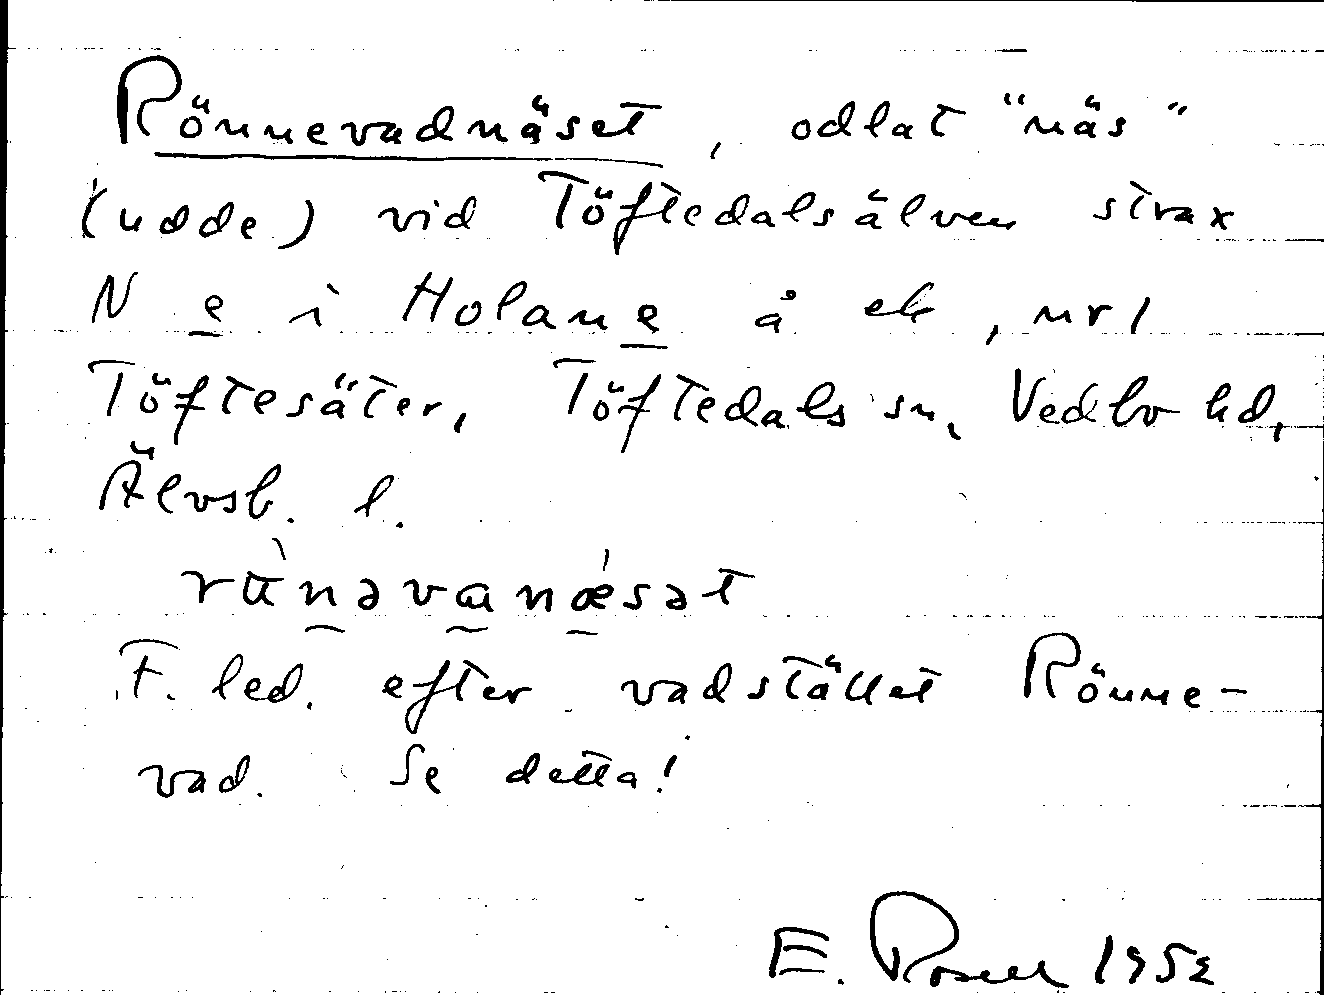 Rönnevadnäset, odlat "näs"
(udde) vid Töftedalsälven strax
N e i Holane å ek, nr 1
Töftesäter, Töftedals sn, Vedbo hd,
Älvsb. l.
F. led. efter vadstället Rönne-
vad. Se detta!
E. Rosell 1952